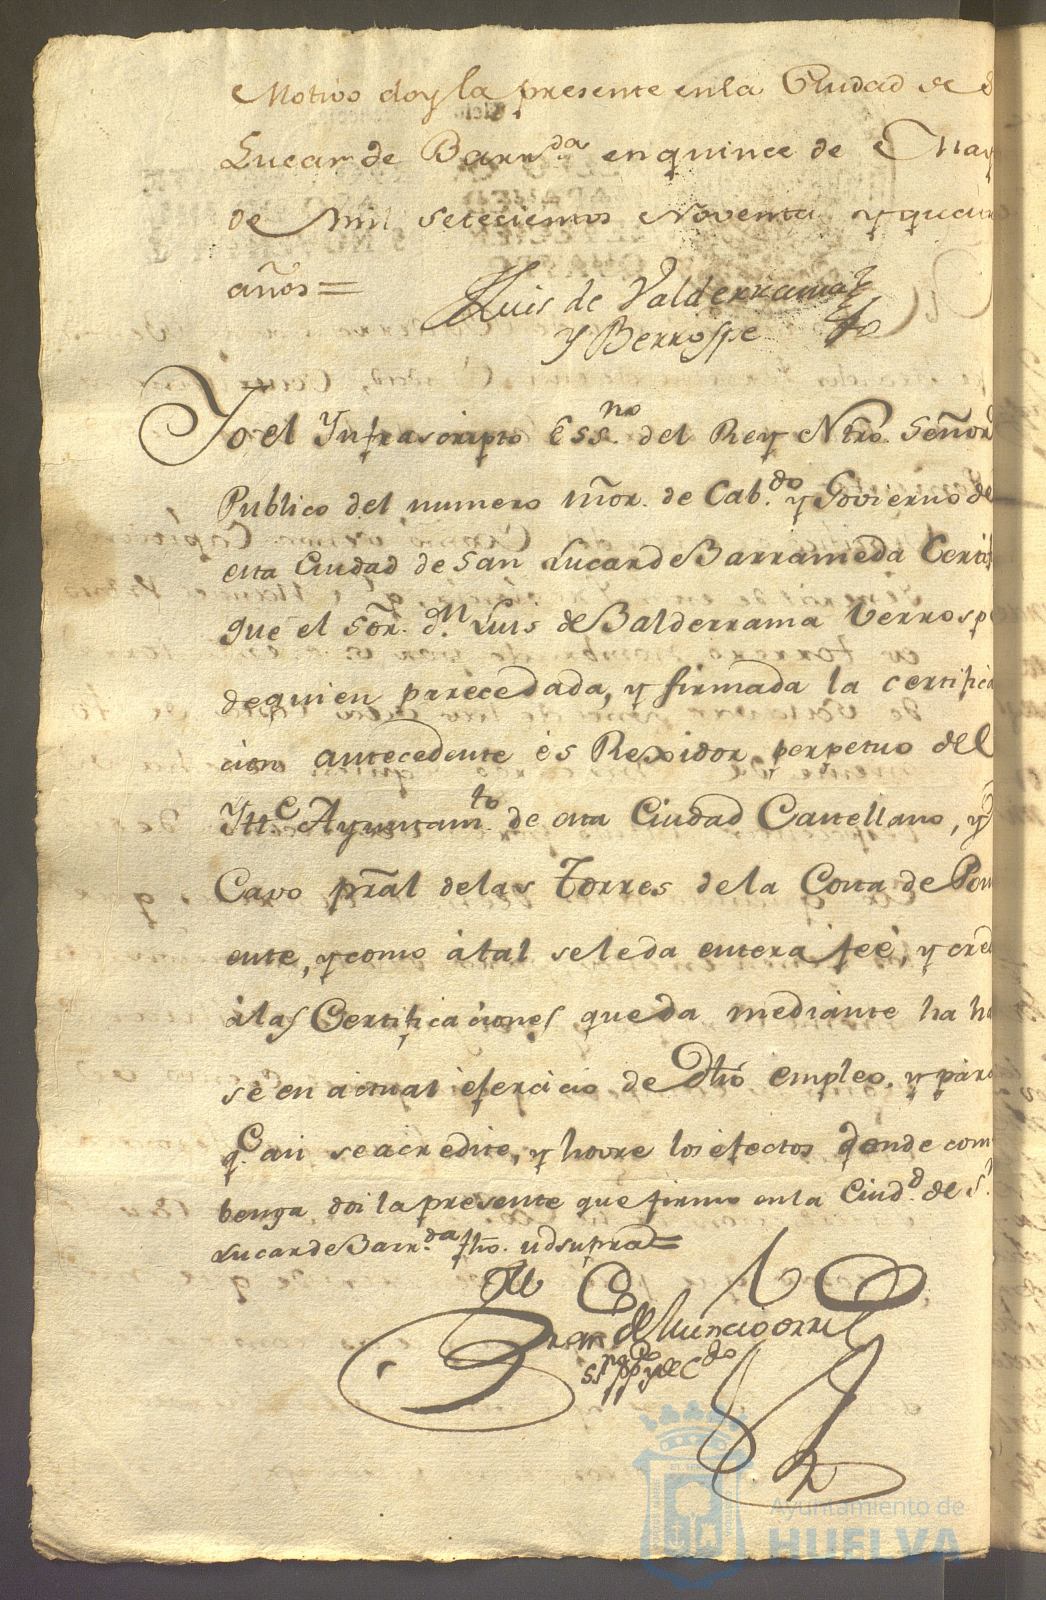 Motivo doy la presente en la Ciudad de S
Lucar de Barr.da en quince de May
de mil setecientos Noventa y quatro
años=
Luis de Valderrama
y Berrospe
Yo el Ynfrascripto Ess.no del Rey Ntro. Señor
Publico del numero mor. de Cab.do y Govierno de
esta Ciudad de San Lucar de Barrameda Certi
que el Sor. d.n Luis de Balderrama Verrosp
de quien parece dada, y firmada la certifica
cion antecedente és Rexidor perpetuo del
Ytt.e Ayuntam.to de esta Ciudad Castellano, y
Cavo pral de las Torres de la Costa de Pon
ente, y como á tal se le da entera feé, y cred
á las Certificaciones que da mediante ha ha
se en actual efercicio de dho empleo, y para
q.e asi se acredite, y hovre los efectos donde com
benga doi la presente que firmo en la Ciud.d de S.n
Lucar de Barr.da fho. ud supra=
s.no pp.co y de C.do
Ayuntamiento de
HUELVA